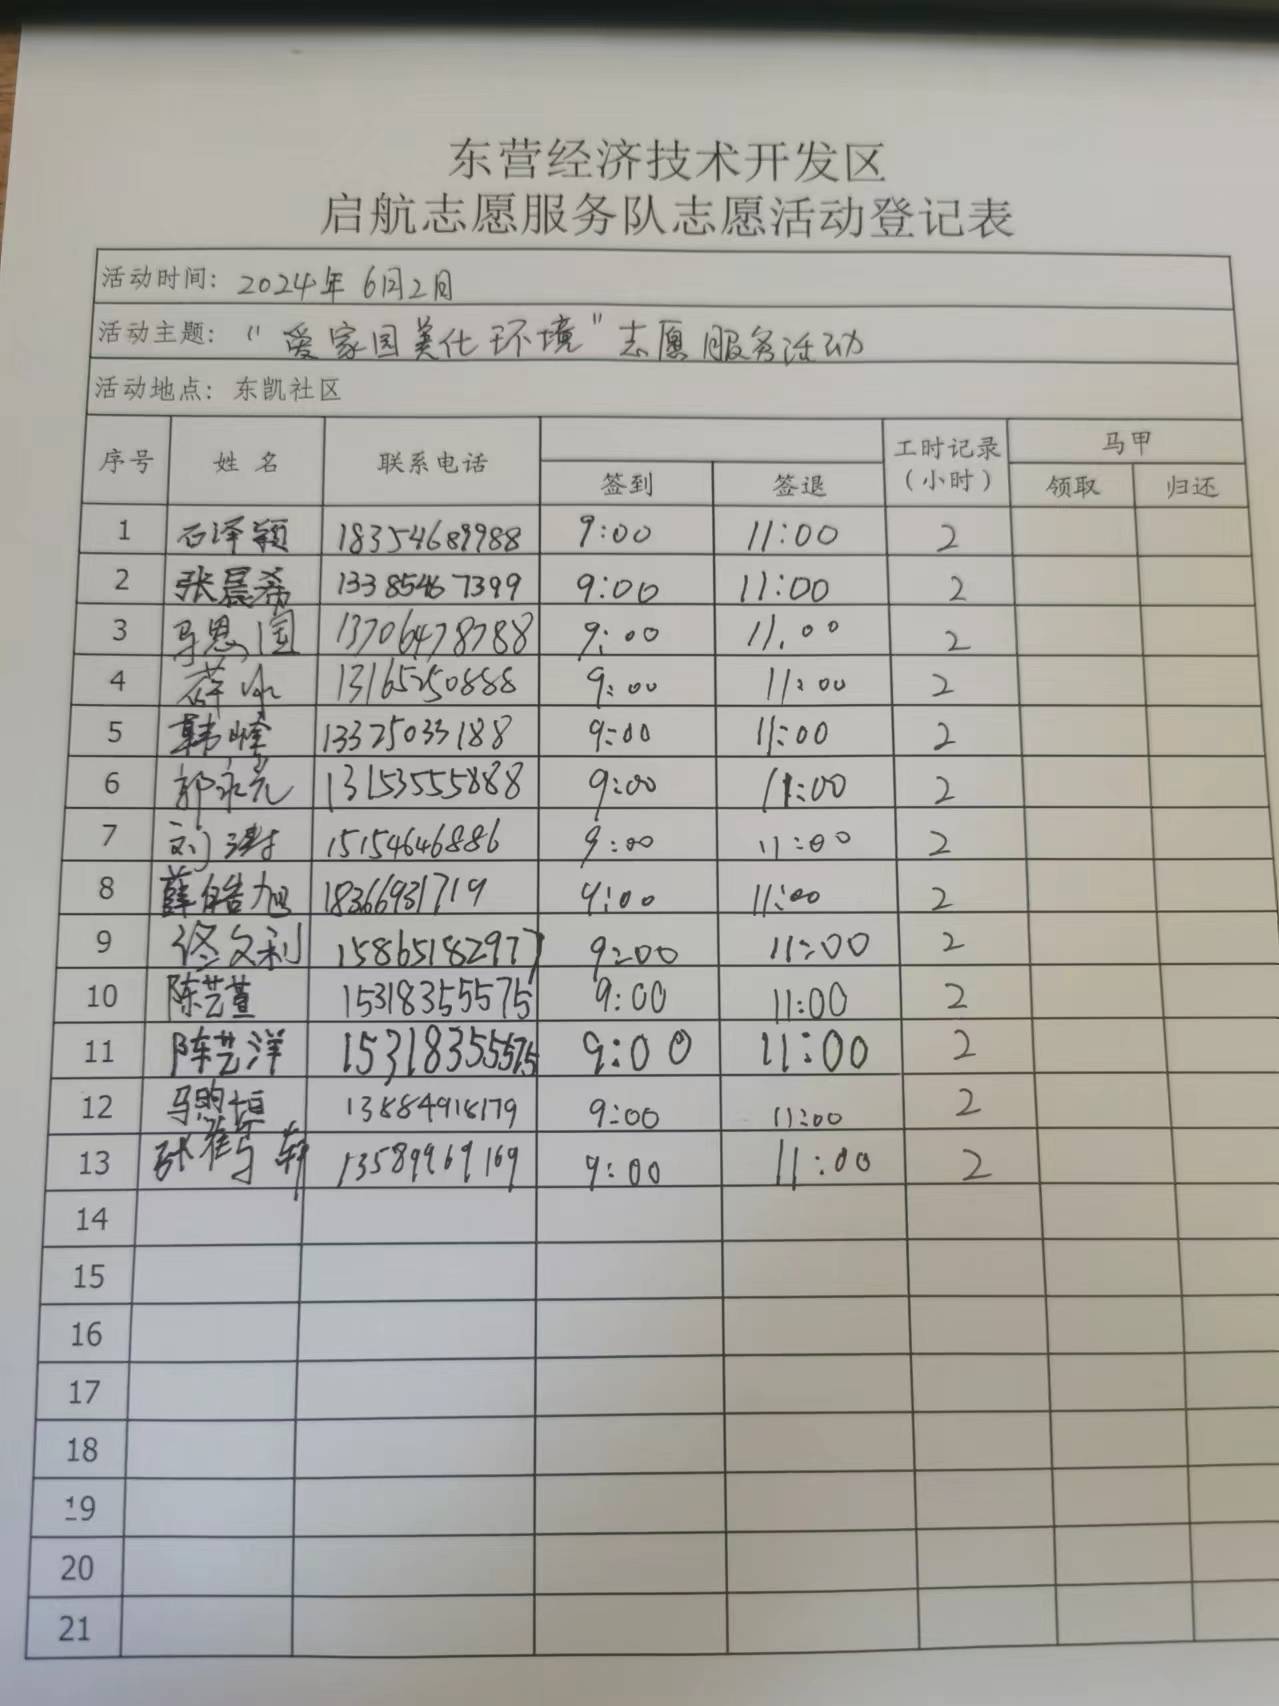 东营经济技术开发区
启航志愿服务队志愿活动登记表
活动时间：2024年6月2日
活动主题："爱家园美化环境"志愿服务活动
活动地点：东凯社区
序号 姓名 联系电话 签到 签退 工时记录（小时） 马甲 领取 归还
1 石泽颖 18354689988 9:00 11:00 2
2 张晨希 13385467399 9:00 11:00 2
3 马恩国 13706478788 9:00 11:00 2
4 薛冰 13165250888 9:00 11:00 2
5 韩峰 13325033188 9:00 11:00 2
6 郭永光 13153555888 9:00 11:00 2
7 刘涛 15154646886 9:00 11:00 2
8 薛皓旭 18366931719 9:00 11:00 2
9 修文利 15865182977 9:00 11:00 2
10 陈艺萱 15318355575 9:00 11:00 2
11 陈艺洋 15318355575 9:00 11:00 2
12 马煦恒 13884918179 9:00 11:00 2
13 张 轩 13589969169 9:00 11:00 2
14
15
16
17
18
19
20
21